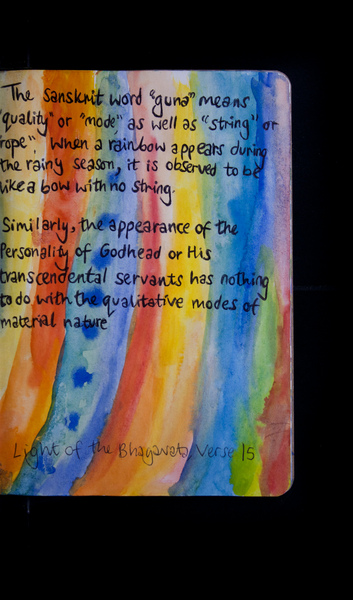 The Sanskrit word "guna" means
"quality" or "mode" as well as "string" or
"rope". When a rainbow appears during
the rainy season, it is observed to be
like a bow with no string.
Similarly, the appearance of the
Personality of Godhead or His
transcendental servants has nothing
to do with the qualitative modes of
material nature
Light of the Bhagavata Verse 15